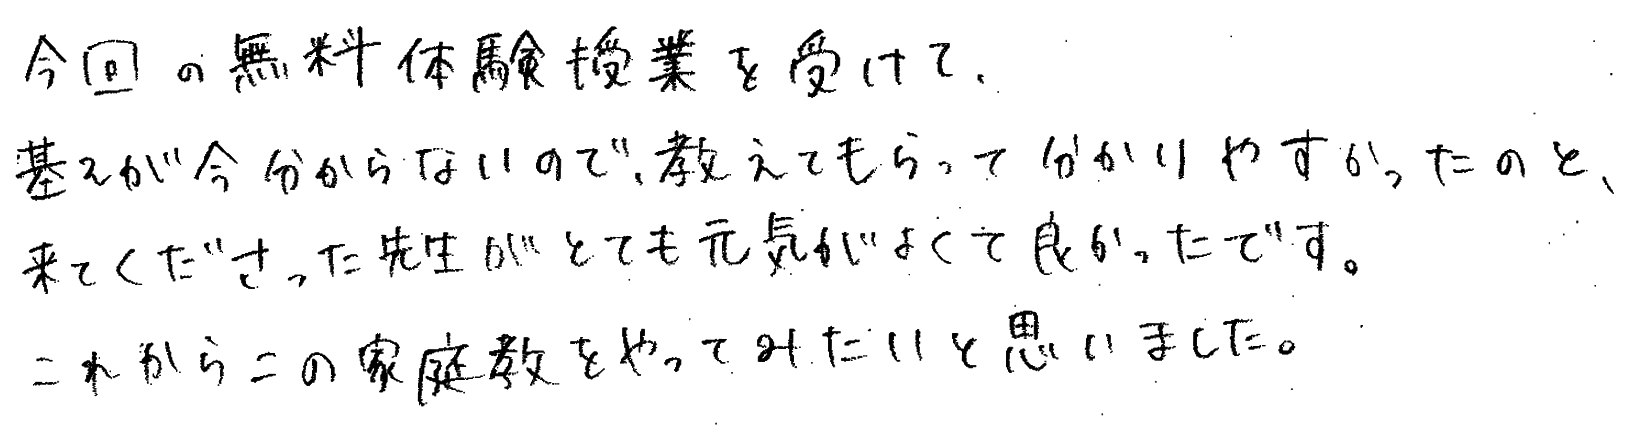 今回の無料体験授業を受けて、
基そが今分からないので、教えてもらって分かりやすかったのと、
来てくださった先生がとても元気がよくて良かったです。
これからこの家庭教をやってみたいと思いました。